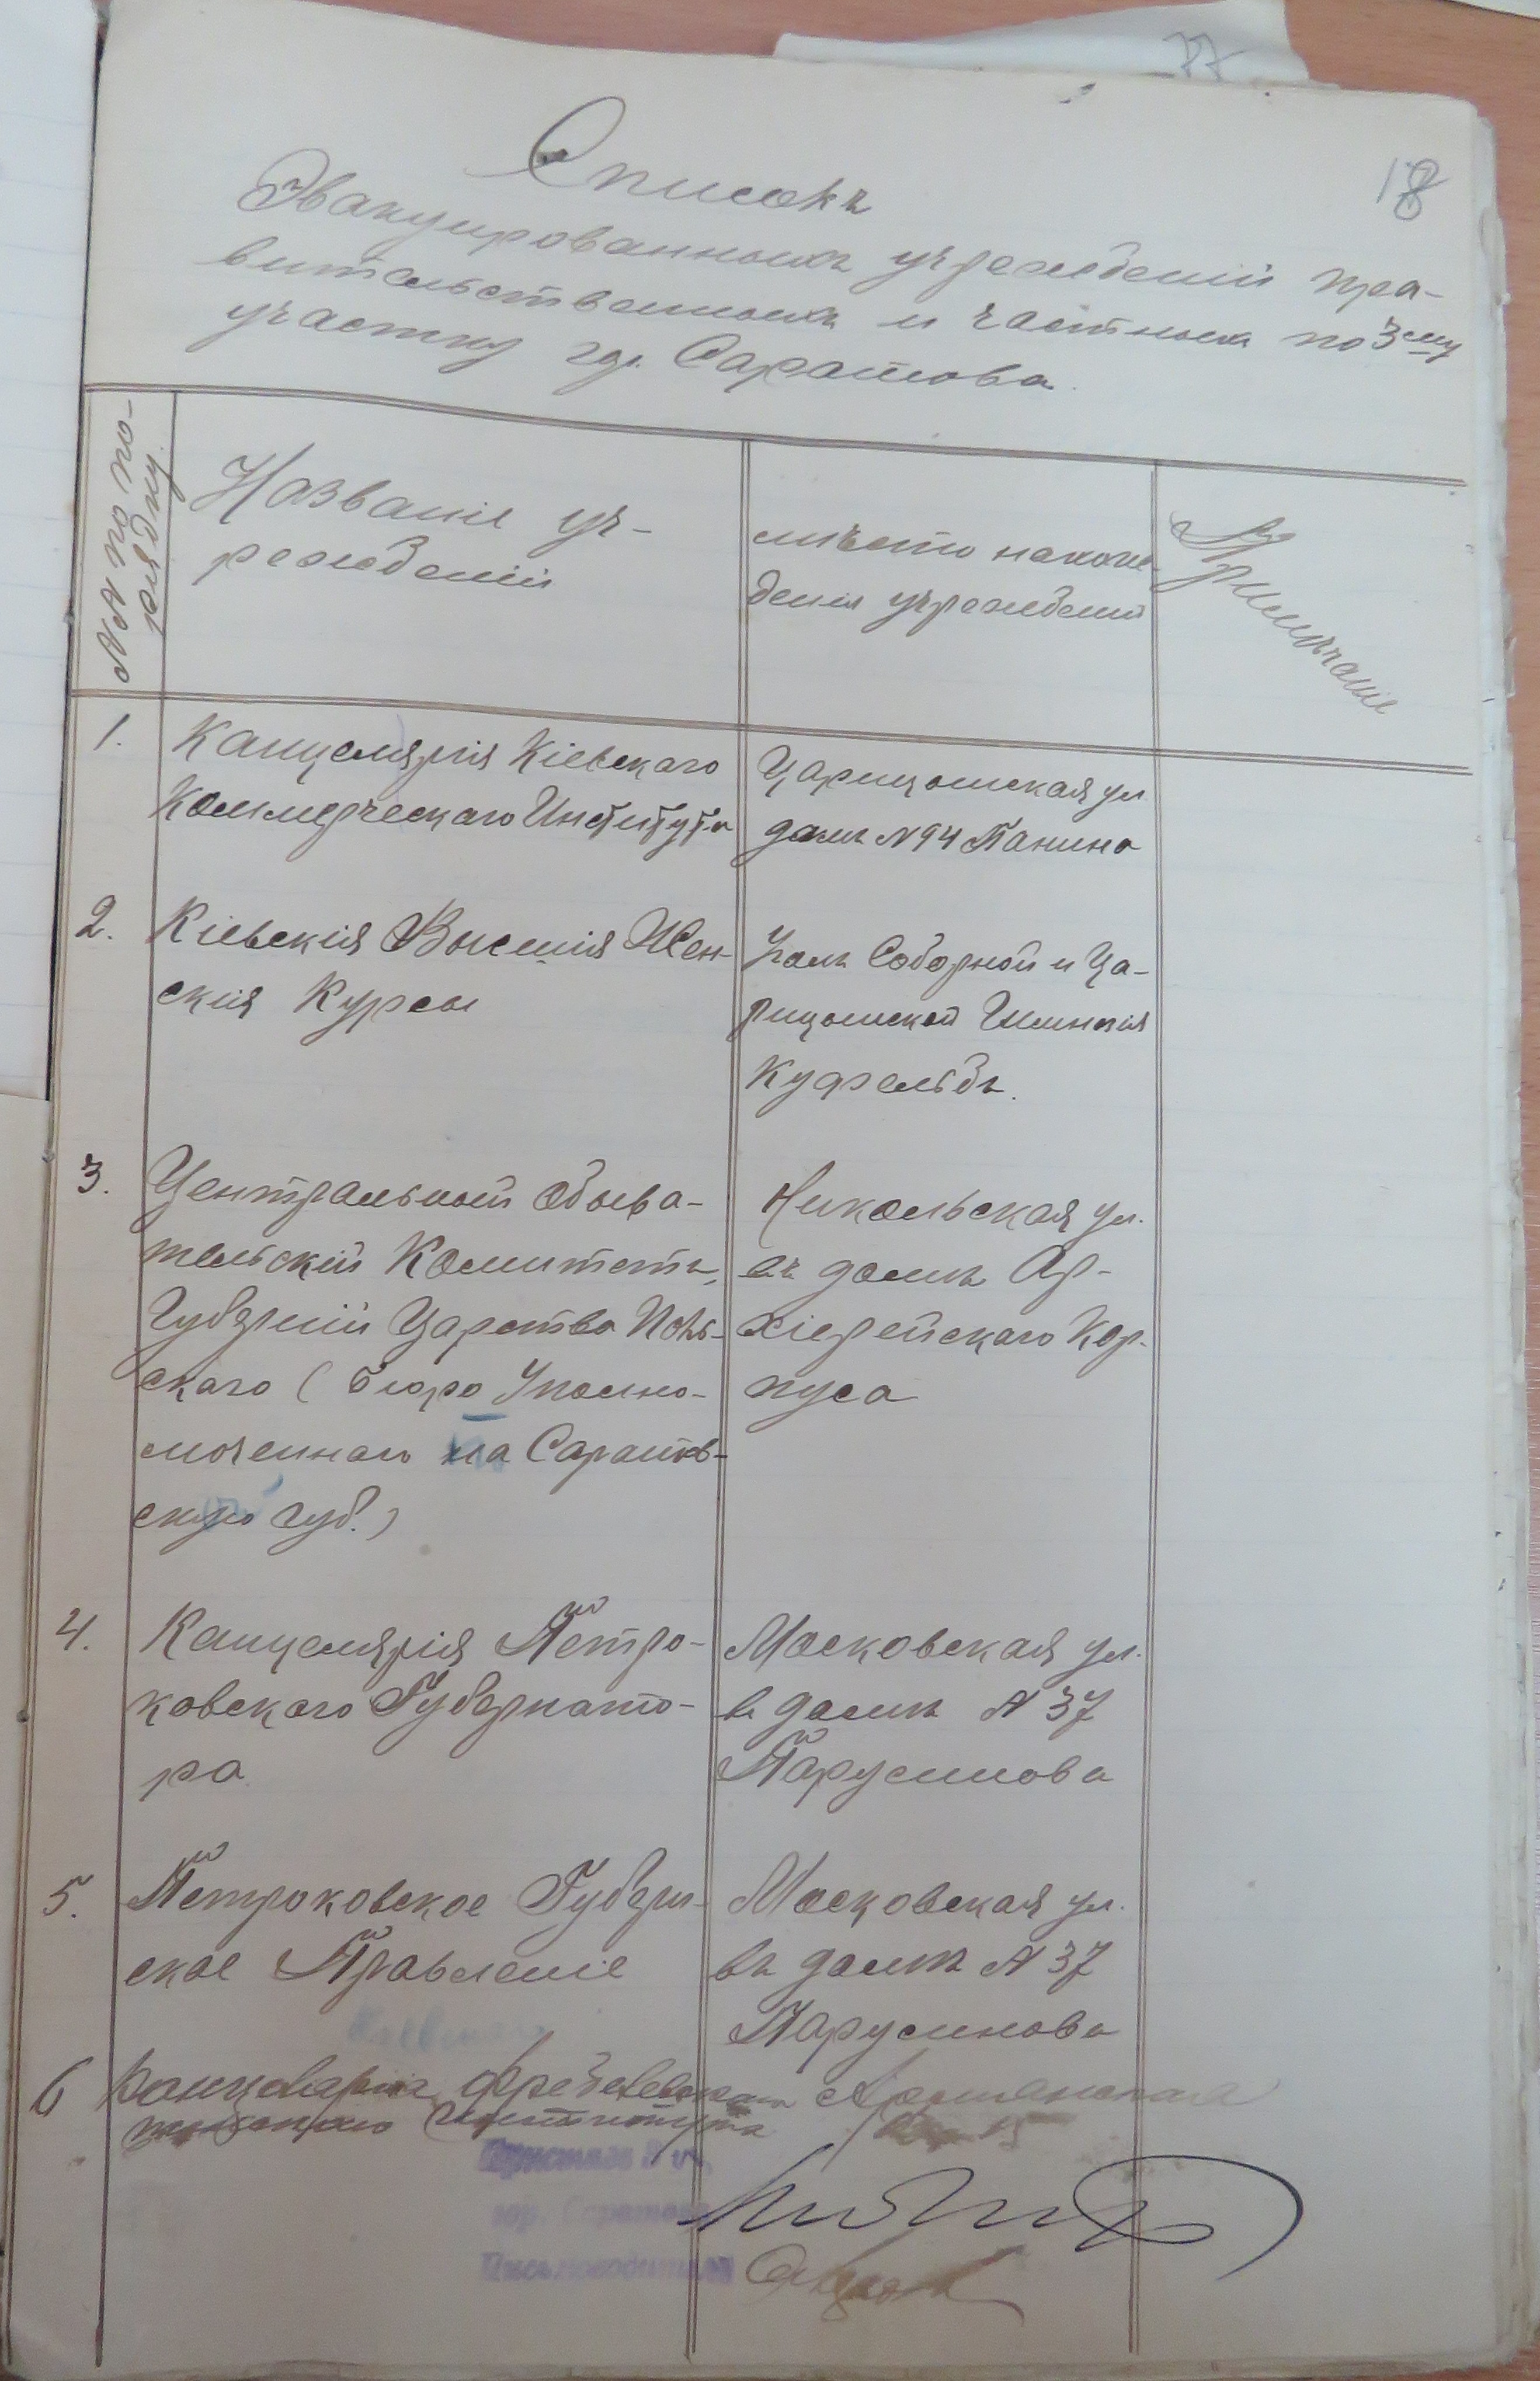 77
18
Списокъ
Эвакуированныхъ учрежденій пра-
вительственныхъ и частныхъ по 3му
участку гор. Саратова.
№№ по по-
рядку.
Названіе уч-
режденій
мѣсто нахож-
денія учрежденій
Примѣчаніе
1. Канцелярія Кіевскаго
Коммерческаго Института
Царицынская ул
домъ №94 Панина
2. Кіевскія Высшія Жен-
скія Курсы
Уголъ Соборной и Ца-
рицынской Гимназія
Куфельдъ.
3. Центральный Обыва-
тельскій Комитетъ,
Губерній Царства Поль-
скаго (бюро Уполно-
моченнаго на Саратов-
скую губ.)
Никольская ул.
въ домѣ Ар-
хіерейскаго Кор-
пуса
4. Канцелярія Петро-
ковскаго Губернато-
ра
Московская ул.
въ домѣ № 37
Парусинова
5. Петроковское Губерн-
ское Правленіе
Московская ул.
въ домѣ № 37
Парусинова
6 Канцелярія Фребелевскаго
Института
Армянская
Приставъ 3 уч.
гор. Саратова
Письмоводитель